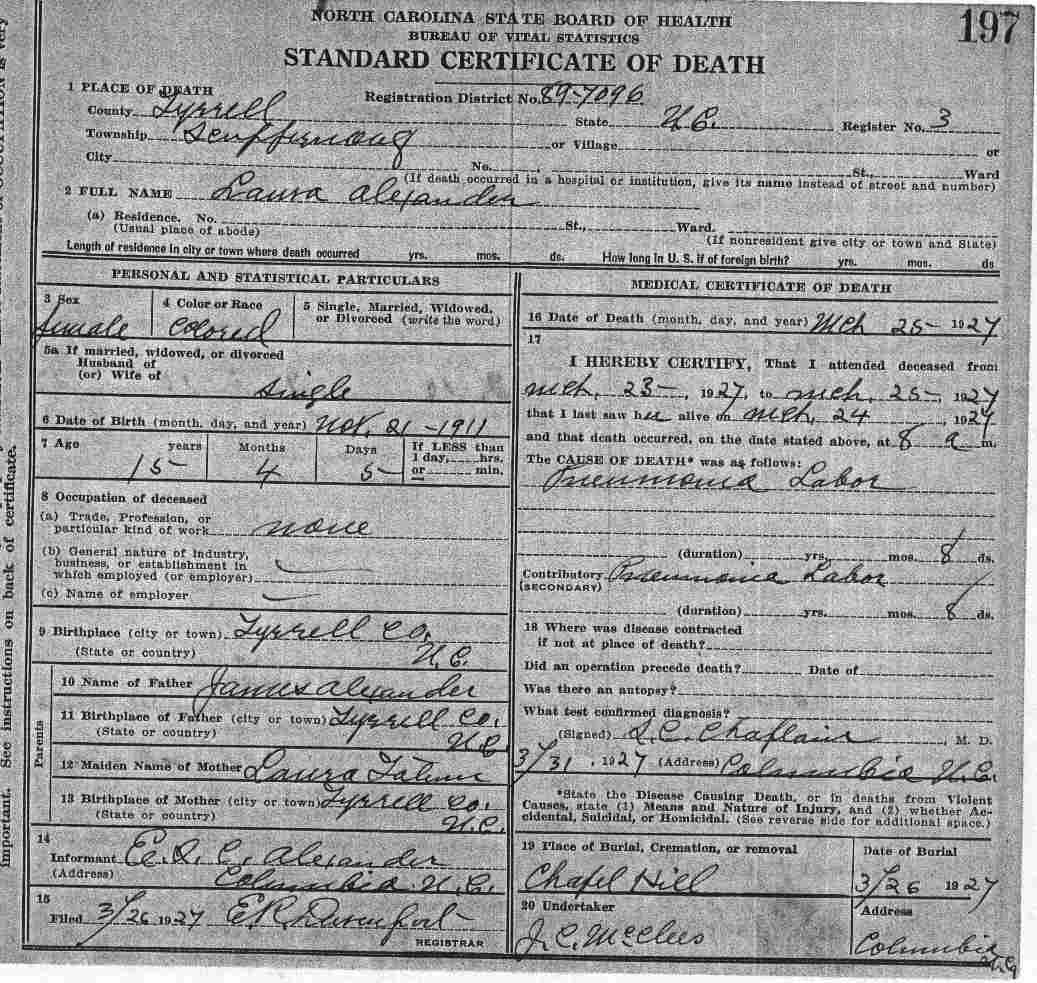 NORTH CAROLINA STATE BOARD OF HEALTH
BUREAU OF VITAL STATISTICS
197
STANDARD CERTIFICATE OF DEATH
1 PLACE OF DEATH
Registration District No. 89-7096
County Tyrrell State N.C. Register No. 3
Township Scuppernong or Village or
City No. St., Ward
(If death occurred in a hospital or institution, give its name instead of street and number)
2 FULL NAME Laura Alexander
(a) Residence. No. St., Ward.
(Usual place of abode) (If nonresident give city or town and State)
Length of residence in city or town where death occurred yrs. mos. ds. How long in U. S. if of foreign birth? yrs. mos. ds
PERSONAL AND STATISTICAL PARTICULARS
3 Sex 4 Color or Race 5 Single, Married, Widowed,
or Divorced (write the word)
female colored
5a If married, widowed, or divorced
Husband of
(or) Wife of
single
6 Date of Birth (month, day, and year) Nov. 21 - 1911
7 Age years Months Days If LESS than
1 day, hrs.
or min.
15 4 5
8 Occupation of deceased
(a) Trade, Profession, or
particular kind of work none
(b) General nature of industry,
business, or establishment in
which employed (or employer)
(c) Name of employer
9 Birthplace (city or town) Tyrrell Co.
(State or country) N.C.
Parents
10 Name of Father James Alexander
11 Birthplace of Father (city or town) Tyrrell Co.
(State or country) N.C.
12 Maiden Name of Mother Laura
13 Birthplace of Mother (city or town) Tyrrell Co.
(State or country) N.C.
14
Informant Alexander
(Address) Columbia N.C.
15
Filed 3/26 1927 E.R. Davenport
REGISTRAR
MEDICAL CERTIFICATE OF DEATH
16 Date of Death (month, day, and year) Mch 25- 1927
17
I HEREBY CERTIFY, That I attended deceased from
Mch. 23-, 1927, to Mch. 25-, 1927
that I last saw her alive on Mch. 24, 1927
and that death occurred, on the date stated above, at 8 a m.
The CAUSE OF DEATH* was as follows:
Pneumonia Labor
(duration) yrs. mos. 8 ds.
Contributory Pneumonia Labor
(SECONDARY)
(duration) yrs. mos. 8 ds.
18 Where was disease contracted
if not at place of death?
Did an operation precede death? Date of
Was there an autopsy?
What test confirmed diagnosis?
(Signed) , M. D.
3/31, 1927 (Address) Columbia N.C.
*State the Disease Causing Death, or in deaths from Violent
Causes, state (1) Means and Nature of Injury, and (2) whether Ac-
cidental, Suicidal, or Homicidal. (See reverse side for additional space.)
19 Place of Burial, Cremation, or removal Date of Burial
Chapel Hill 3/26 1927
20 Undertaker Address
J.C. McClees Columbia
N.C.
important. See instructions on back of certificate.